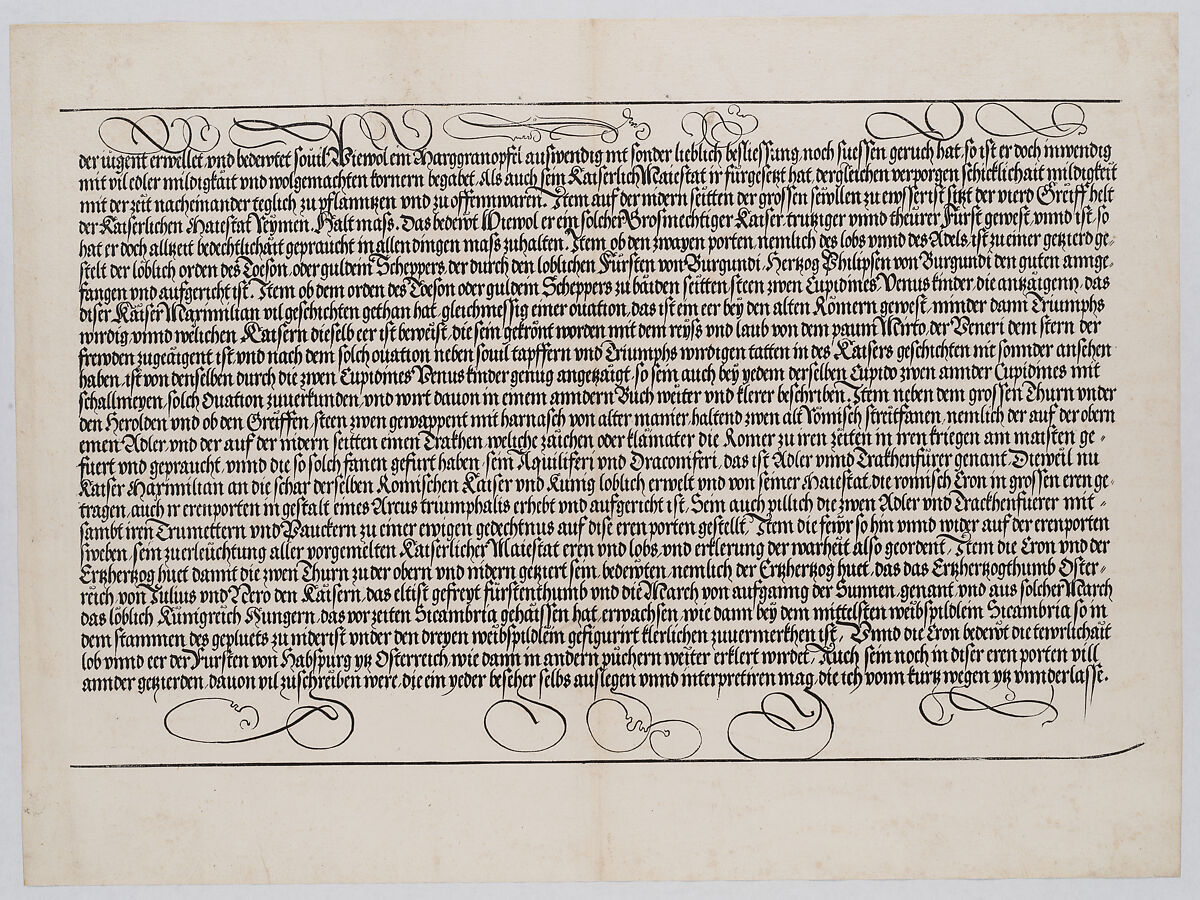 der iugent erwellet, vnd bedewtet souil, Wiewol ein Marggranopfel auswendig nit sonder lieblich besliessung, noch suessen geruch hat, so ist er doch inwendig
mit vil edler mildigkait vnd wolgemachten kornern begabet, Als auch sein Kaiserlich Maiestat ir fürgesetzt hat, dergleichen verporgen schicklichait mildigkeit
mit der zeit nacheinander teglich zu pflanntzen vnd zu offennwaren. Item auf der nidern seitten der grossen sewllen zu ewsserist sitzt der vierd Greiff helt
der Kaiserlichen Maiestat Reymen. Halt mass. Das bedewt Wiewol er ein solcher Grosmechtiger Kaiser, trutziger vnnd theurer Fürst gewest, vnnd ist, so
hat er doch alltzeit bedechtlichait gepraucht in allen dingen mass zuhalten. Item ob den zwayen porten, nemlich des lobs vnnd des Adels, ist zu einer getzierd ge-
stelt der löblich orden des Toeson, oder guldem Scheppers, der durch den loblichen Fürsten von Burgundi, Hertzog Philipsen von Burgundi den guten annge-
fangen vnd aufgericht ist. Item ob dem orden des Toeson oder guldem Scheppers zu baiden seitten steen zwen Cupidines Venus kinder, die antzaigenn, das
diser Kaiser Maximilian vil geschichten gethan hat, gleichmessig einer ouation, das ist ein eer bey den alten Römern gewest, minder dann Triumphs
wirdig, vnnd welichen Kaisern dieselb eer ist beweist, die sein gekrönt worden mit dem reyß vnd laub von dem paum Mirto, der Veneri dem stern der
frewden zugeaigent ist, vnd nach dem solch ouation neben souil tapffern vnd Triumphs wirdigen tatten in des Kaisers geschichten nit sonnder ansehen
haben, ist von denselben durch die zwen Cupidines Venus kinder genug angetzaigt, so sein auch bey yedem derselben Cupido zwen annder Cupidines mit
schallmeyen, solch Ouation zuuerkunden, vnd wirt dauon in einem anndern Buch weiter vnd klerer beschriben. Item neben dem grossen Thurn vnder
den Herolden vnd ob den Greiffen, steen zwen gewappent mit harnasch von alter manier, haltend zwen alt Römisch streitfanen, nemlich der auf der obern
einen Adler, vnd der auf der nidern seitten einen Trakhen, weliche zaichen oder klainater die Romer zu iren zeiten in iren kriegen am maisten ge-
fuert vnd gepraucht, vnnd die so solch fanen gefurt haben, sein Aquiliferi vnd Draconiferi, das ist Adler vnnd Trakhenfürer genant. Dieweil nu
Kaiser Maximilian an die schar derselben Romischen Kaiser vnd Kunig loblich erwelt vnd von seiner Maiestat, die romisch Cron in grossen eren ge-
tragen, auch ir erenporten in gestalt eines Arcus triumphalis erhebt vnd aufgericht ist. Sein auch pillich die zwen Adler vnd Trackhenfuerer mit-
sambt iren Trumettern vnd Pauckern zu einer ewigen gedechtnus auf dise eren porten gestellt. Item die fewr so hin vnnd wider auf der erenporten
sweben, sein zuerleuchtung aller vorgemelten Kaiserlicher Maiestat eren vnd lobs, vnd erklerung der warheit also geordent, Item die Cron vnd der
Ertzhertzog huet damit die zwen Thurn zu der obern vnd nidern getziert sein, bedewten, nemlich der Ertzhertzog huet, das das Ertzhertzogthumb Oster-
reich, von Julius vnd Nero den Kaisern, das eltist gefreyt fürstenthumb vnd die March von aufganng der Sunnen, genant, vnd aus solcher March
das löblich Künigreich Hungern, das vor zeiten Sicambria gehaissen hat, erwachsen, wie dann bey dem mittelsten weibspildlem Sicambria so in
dem stammen des gepluets zu niderist vnder den dreyen weibspildlein gefigurirt klerlichen zuuermerkhen ist, Vnnd die Cron bedewt die tewrlichait
lob vnnd eer der Fursten von Habspurg ytz Osterreich, wie dann in andern püchern weiter erklert wirdet, Auch sein noch in diser eren porten vill
annder getzierden, dauon vil zuschreiben were, die ein yeder beseher selbs auslegen vnnd interpretiren mag, die ich vonn kurtz wegen ytz vnnderlasse.